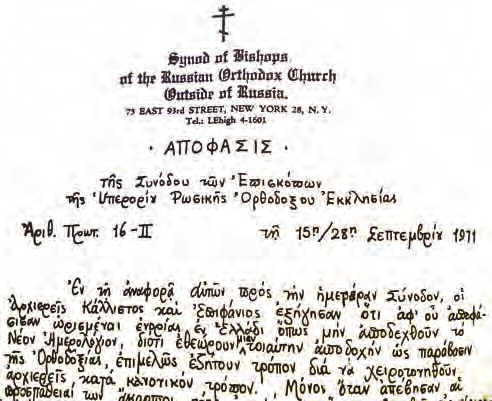 Synod of Bishops
of the Russian Orthodox Church
Outside of Russia.
75 EAST 93rd STREET, NEW YORK 28, N. Y.
Tel.: LEhigh 4-1601
· ΑΠΟΦΑΣΙΣ ·
τῆς Συνόδου τῶν Ἐπισκόπων
τῆς Ὑπερορίου Ρωσικῆς Ὀρθοδόξου Ἐκκλησίας
Ἀριθ. Πρωτ. 16-II τῇ 15ῃ/28ῃ Σεπτεμβρίου 1971
Ἐν τῇ ἀναφορᾷ αὐτῶν πρὸς τὴν ἡμετέραν Σύνοδον, οἱ
ἀρχιερεῖς Κάλλιστος καὶ Ἐπιφάνιος ἐξήγησαν ὅτι ἀφ' οὗ ἀπεφά-
σισαν ὡρισμέναι ἐνορίαι ἐν Ἑλλάδι ὅπως μὴν ἀποδεχθοῦν τὸ
Νέον Ἡμερολόγιον, διότι ἐθεώρουν μίαν τοιαύτην ἀποδοχὴν ὡς παράβασιν
τῆς Ὀρθοδοξίας, ἐπιμελῶς ἐζήτουν τρόπον διὰ νὰ χειροτονηθοῦν
ἀρχιερεῖς κατὰ κανονικὸν τρόπον. Μόνον ὅταν ἀπέβησαν αἱ
προσπάθειαί των ἄκαρποι